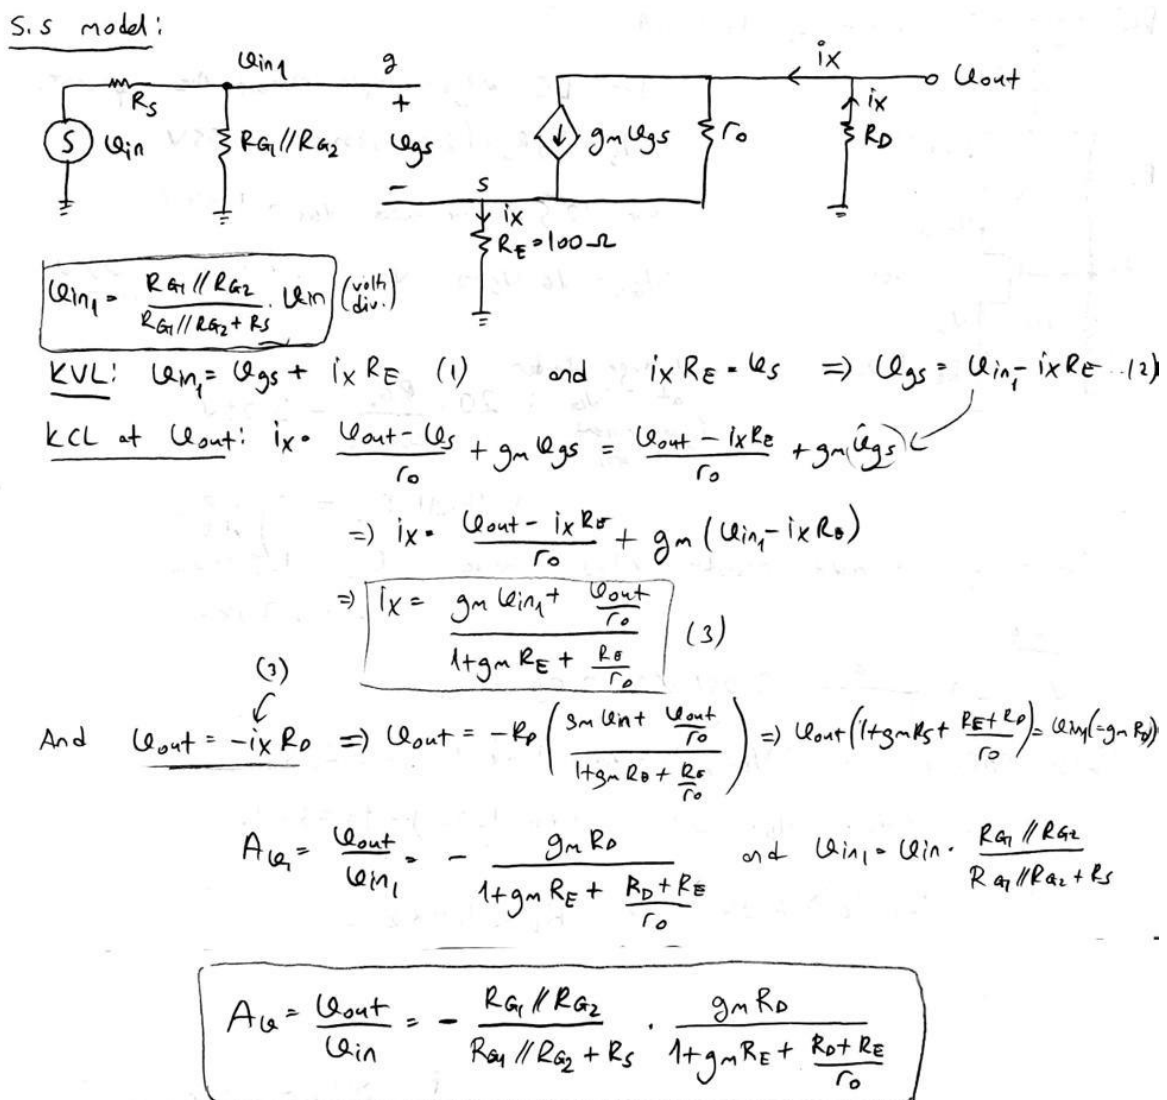 S.S model:
υin1 g ix υout
RS + ix
S υin RG1//RG2 υgs gmυgs ro RD
− s
ix
RE=100Ω
υin1 = (RG1//RG2)/(RG1//RG2+RS) · υin (volt div.)
KVL: υin1 = υgs + ix RE (1) and ix RE = υs => υgs = υin1 - ix RE ..(2)
KCL at υout: ix = (υout - υs)/ro + gm υgs = (υout - ix RE)/ro + gm(υgs)
=> ix = (υout - ix RE)/ro + gm(υin1 - ix RE)
=> ix = (gm υin1 + υout/ro)/(1+gm RE + RE/ro) (3)
(3)
And υout = -ix RD => υout = -RD ((gm υin1 + υout/ro)/(1+gm RE + RE/ro)) => υout(1+gm RS + (RE+RD)/ro) = υin1(-gm RD)
Aυ1 = υout/υin1 = - gm RD/(1+gm RE + (RD+RE)/ro) and υin1 = υin · (RG1//RG2)/(RG1//RG2+RS)
Aυ = υout/υin = - (RG1//RG2)/(RG1//RG2 + RS) · gm RD/(1+gm RE + (RD+RE)/ro)